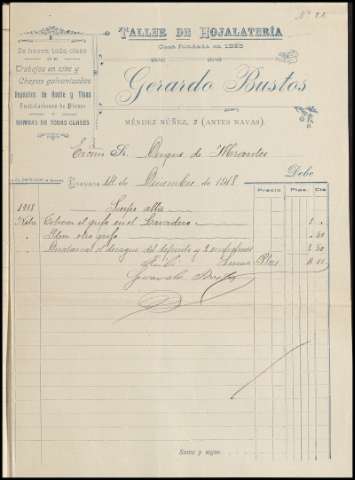 Nº 22
TALLER DE HOJALATERÍA
Casa fundada en 1885
Se hacen toda clase
DE
Trabajos en zinc y
Chapas galvanizadas
Depósitos de Aceite y Vinos
Instalaciones de Pianos
BOMBAS DE TODAS CLASES
Gerardo Bustos
MÉNDEZ NÚÑEZ, 2 (ANTES NAVAS).
Excmo Sr. Duque de
Debe
de Diciembre de 1918
Precio Ptas. Cts
1918
Colocar el grifo en el Lavadero 1
Idem otro grifo 50
el desagüe del depósito y 2 2 50
Suma Ptas
Gerardo Bustos
Suma y sigue